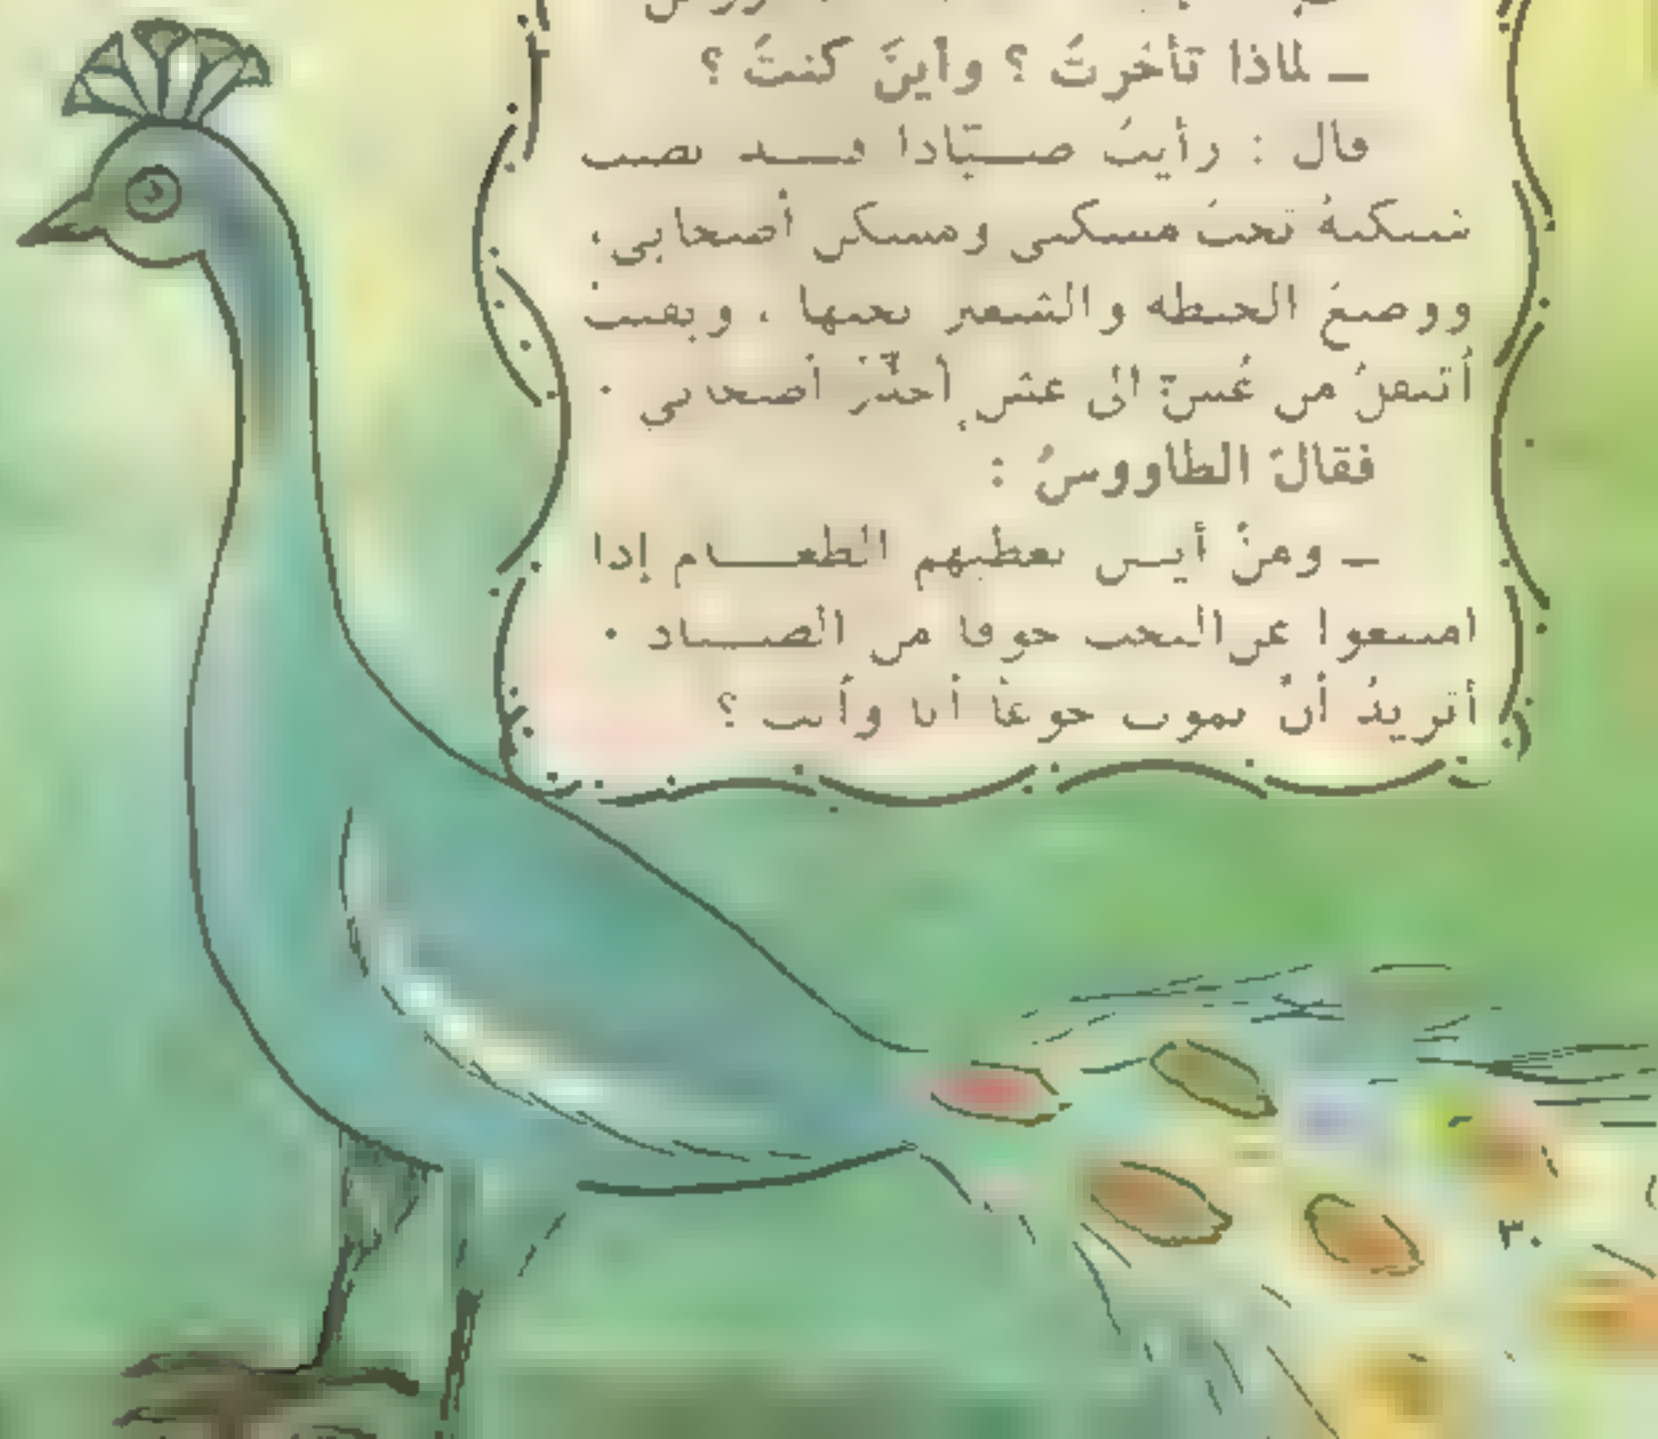 – لماذا تأخرتَ ؟ وأينَ كنتَ ؟
قال : رأيتُ صيّادا قد نصب
شبكتهُ تحتَ مسكني ومسكن أصحابي ،
ووضعَ الحنطة والشعير تحتها ، وبقيتُ
أتنقلُ من عُشّ الى عش أحذّرُ أصحابي .
فقالَ الطاووسُ :
– ومنْ أين نعطيهم الطعام إذا
امتنعوا عن الحب خوفا من الصياد .
أتريدُ أنْ نموت جوعاً أنا وأنت ؟
٣٠